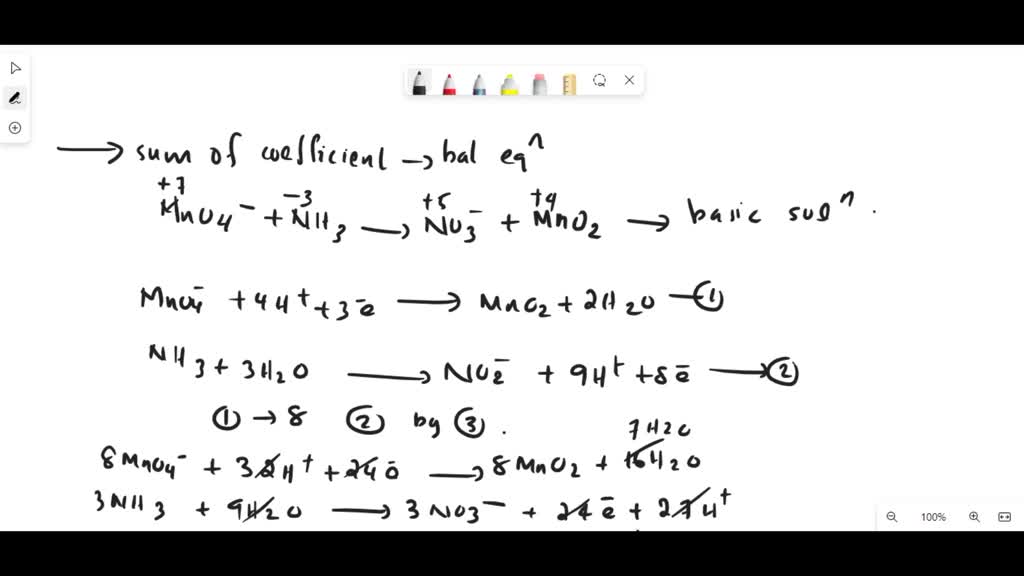 → sum of coefficient → bal eqⁿ
+7 -3 +5 +4
MnO4⁻ + NH3 → NO3⁻ + MnO2 → basic solⁿ.
MnO4⁻ + 4H⁺ + 3e⁻ → MnO2 + 2H2O —①
NH3 + 3H2O → NO2⁻ + 9H⁺ + 8e⁻ → ②
① → 8 ② by ③.
7H2O
8MnO4⁻ + 32H⁺ + 24e⁻ → 8MnO2 + 16H2O
3NH3 + 9H2O → 3NO3⁻ + 24e⁻ + 27H⁺
100%